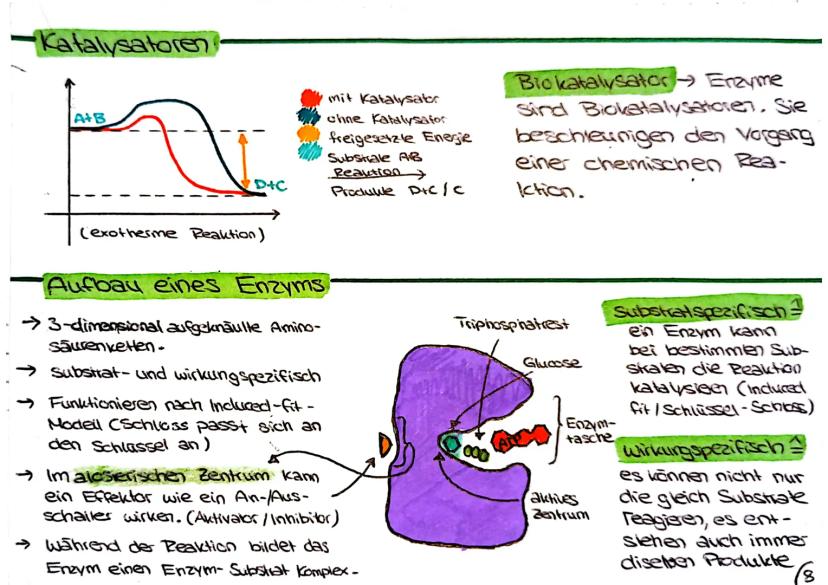 Katalysatoren
A+B
D+C
(exotherme Reaktion)
mit Katalysator
ohne Katalysator
freigesetzte Energie
Substrate AB
Reaktion
Produkte D+C/C
Biokatalysator → Enzyme
sind Biokatalysatoren. Sie
beschleunigen den Vorgang
einer chemischen Rea-
ktion.
Aufbau eines Enzyms
→ 3-dimensional aufgeknäulte Amino-
säurenketten.
→ Substrat- und wirkungspezifisch
→ Funktionieren nach Induced-fit-
Modell (Schloss passt sich an
den Schlüssel an)
→ Im alosterischen Zentrum kann
ein Effektor wie ein An-/Aus-
schalter wirken. (Aktivator/Inhibitor)
→ Während der Reaktion bildet das
Enzym einen Enzym-Substrat Komplex.
Triphosphatrest
Glucose
ATP
Enzym-
tasche
aktives
Zentrum
Substratspezifisch ≙
ein Enzym kann
bei bestimmten Sub-
straten die Reaktion
katalysieren (Induced
fit/Schlüssel-Schloss)
wirkungspezifisch ≙
es können nicht nur
die gleich Substrate
reagieren, es ent-
stehen auch immer
dieselben Produkte
8